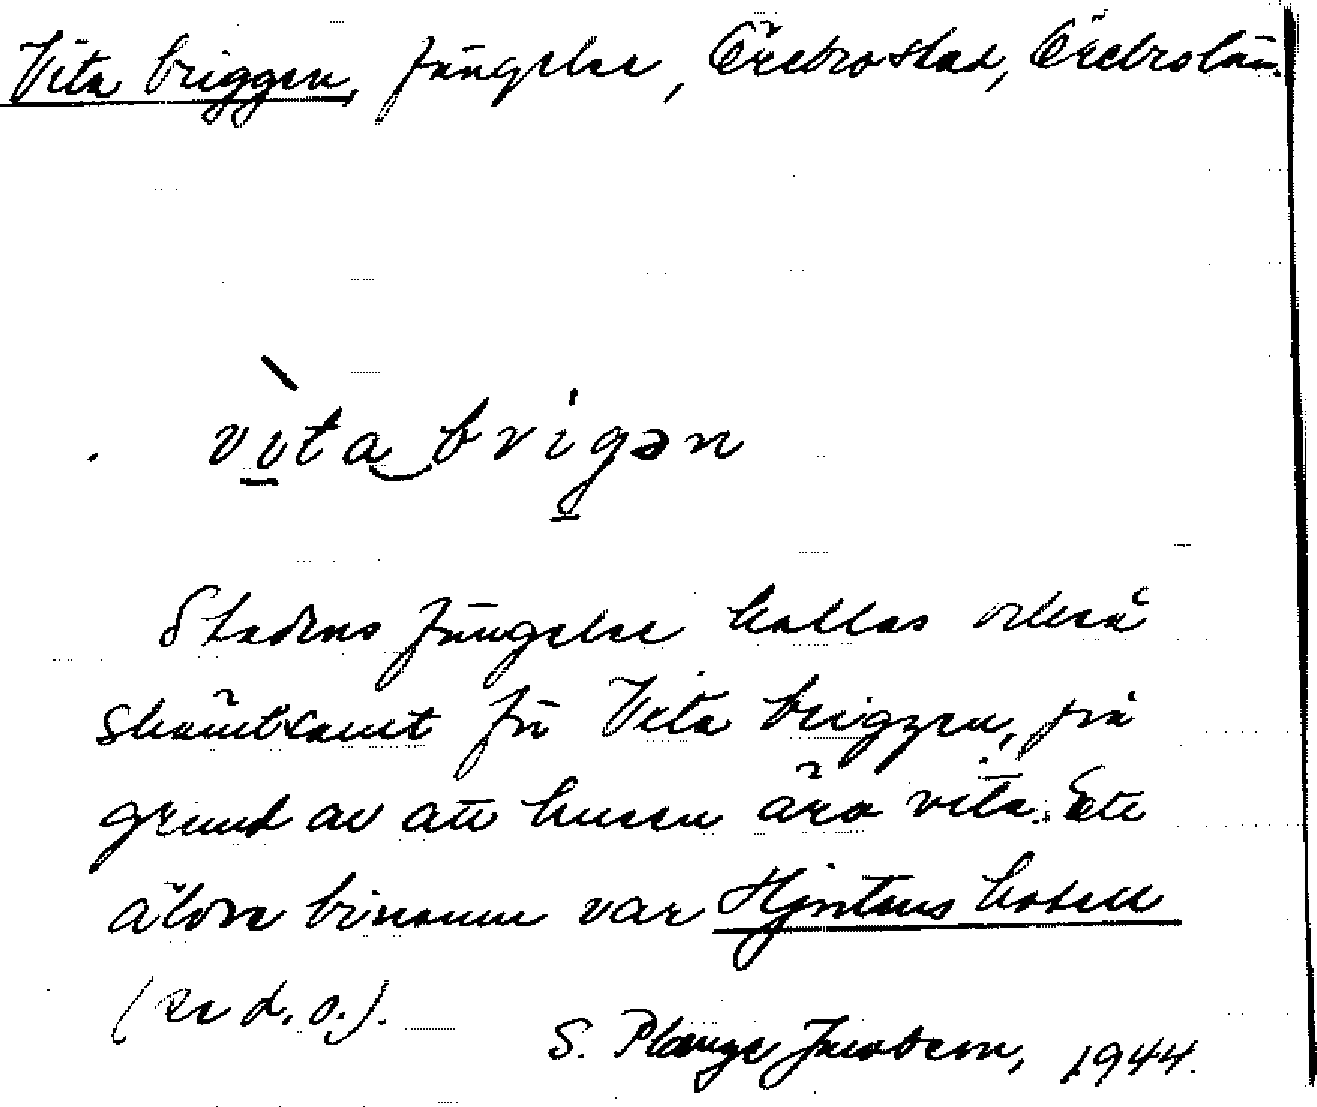 Vita briggen, fängelse, Örebro stad, Örebro län.
vita brigən
Stadens fängelse kallas också
skämtsamt för Vita briggen, på
grund av att husen äro vita. Ett
äldre binamn var Hjortens hotell
(se d. o.).
S. Plange Jacobson, 1944.